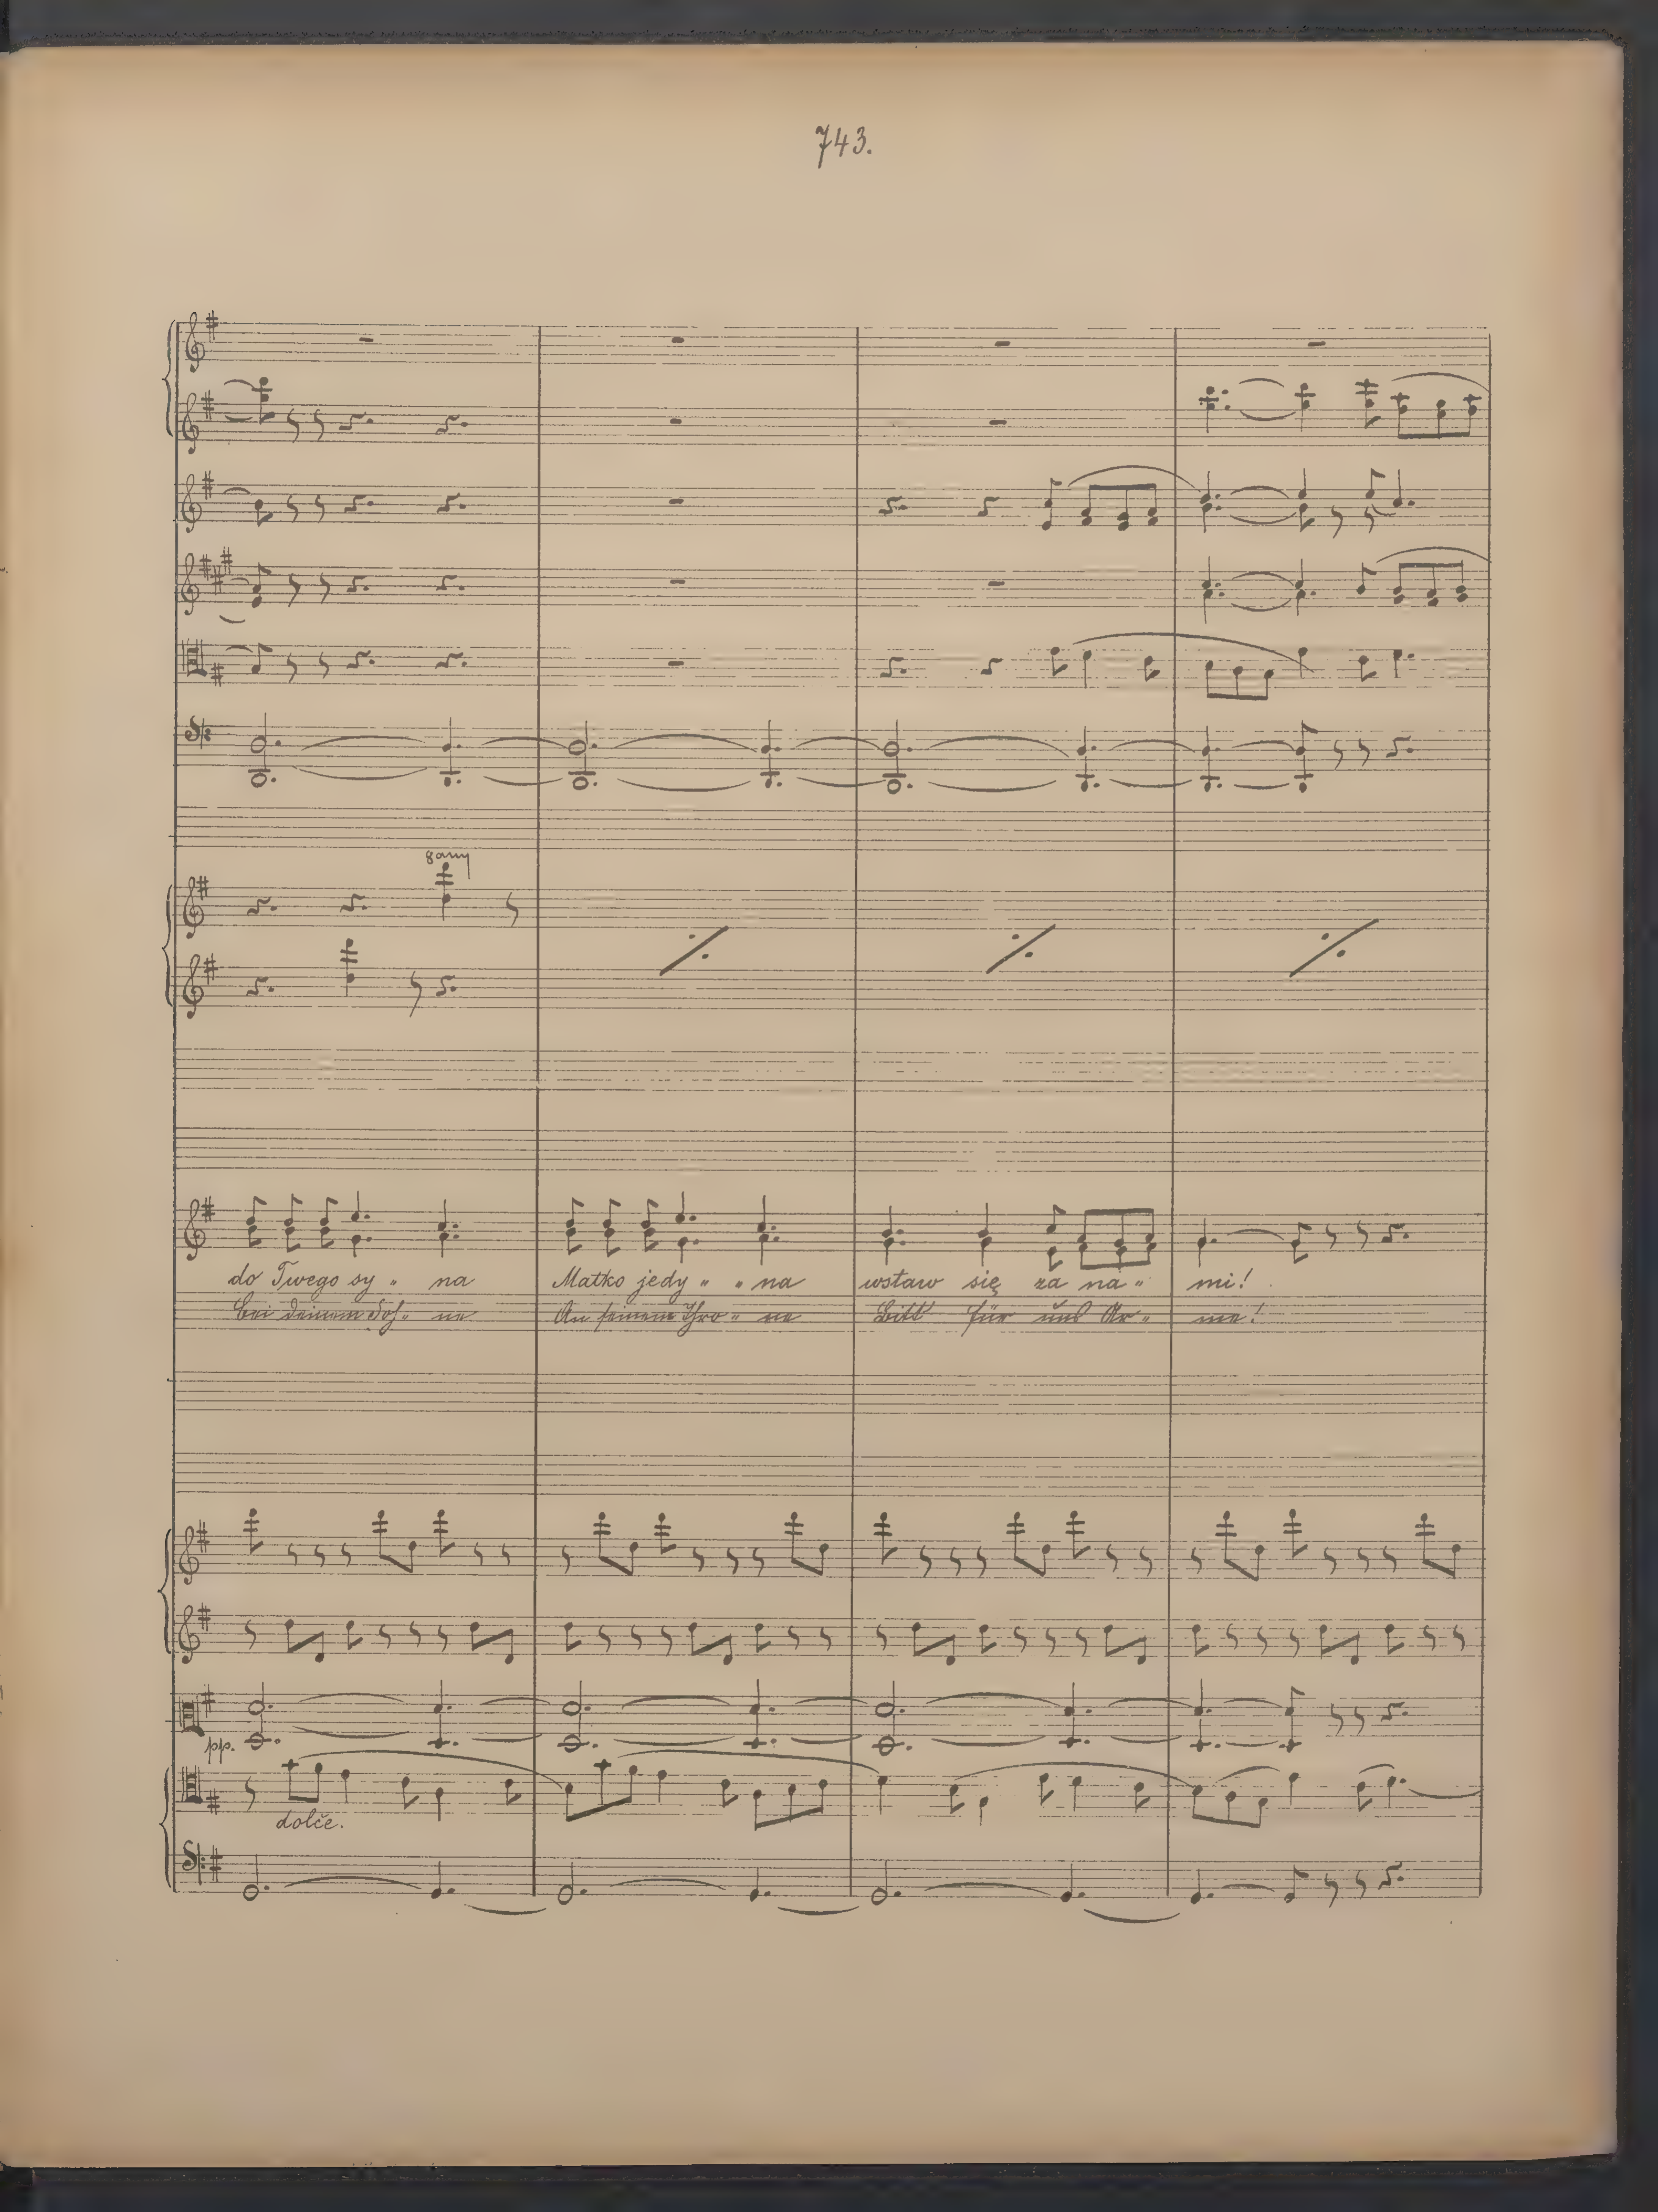 743.
8amy
do Twego sy " na Matko jedy " " na wstaw się za na " mi!
bei deinem Soh " ne An seinem Thro " ne Bitt' für uns Ar " me!
pp.
dolče.